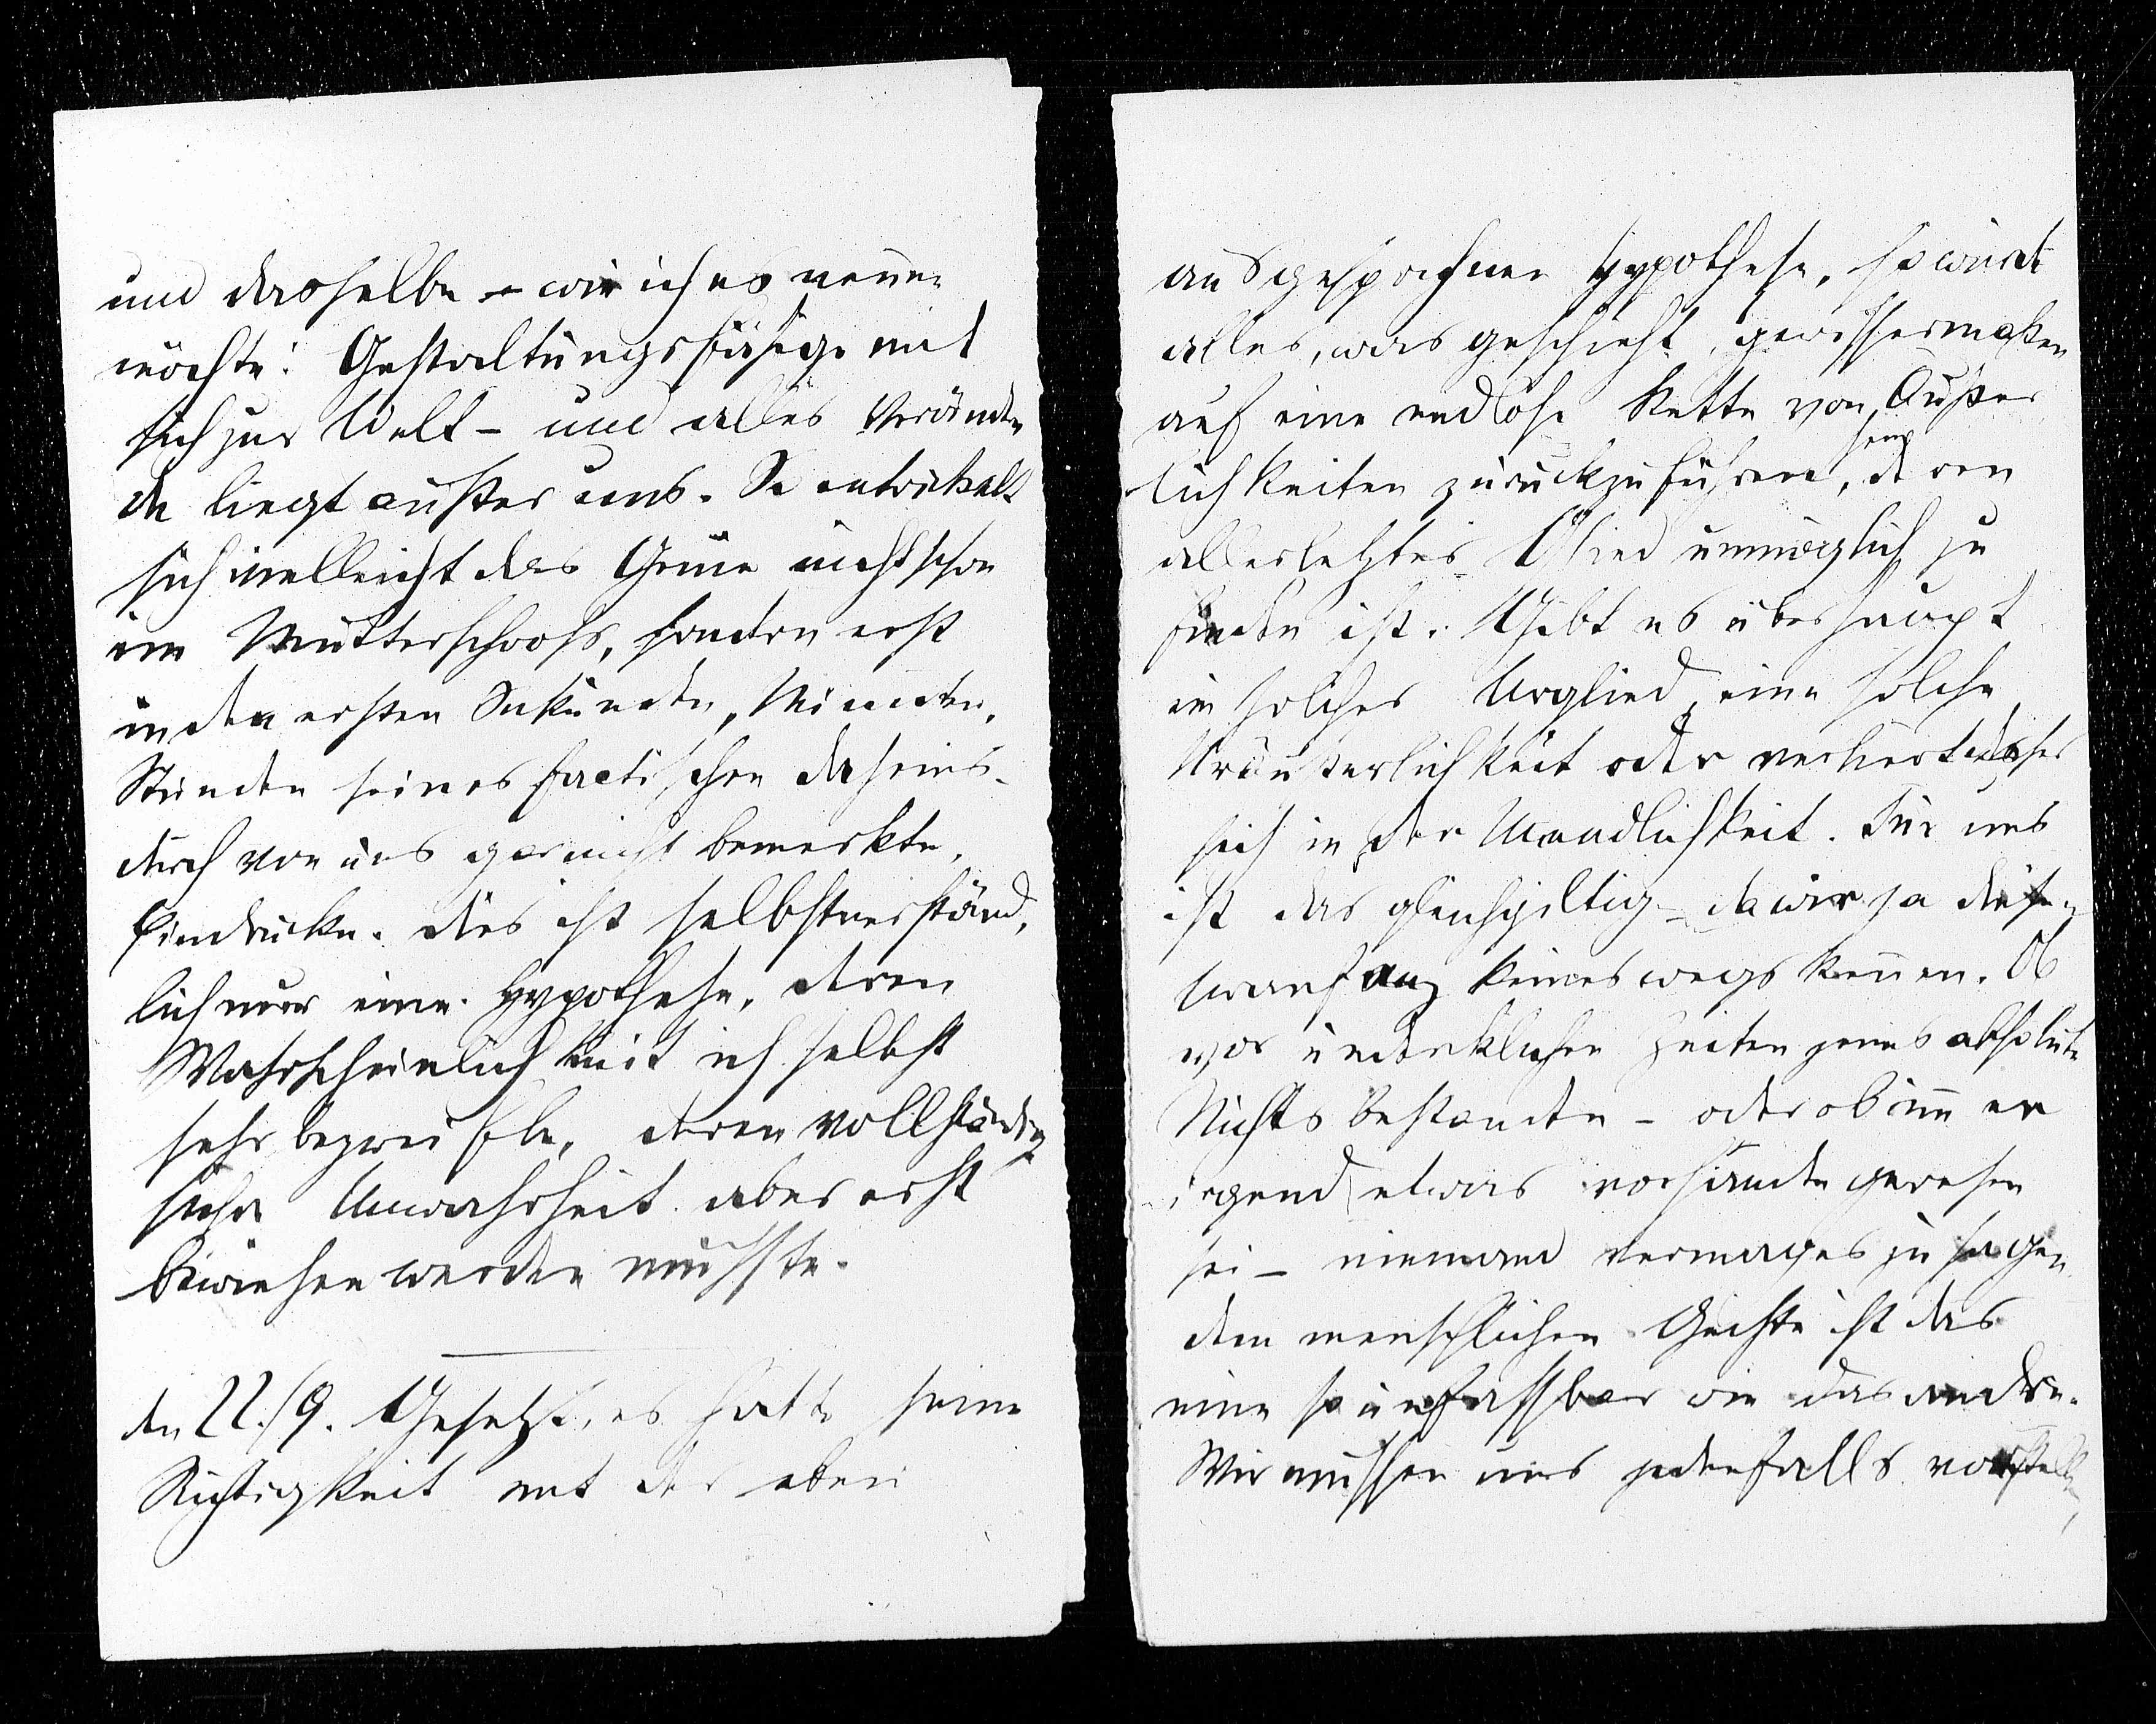 und dasselbe – wie ich es nennen
möchte: Gestaltungsfähige mit
sich zur Welt – und alles Verändern
de liegt außer uns. So entwickelt
sich vielleicht das Genie nicht schon
im Mutterschooß, sondern erst
in den ersten Sekunden, Minuten,
Stunden seines factischen Daseins
durch von uns gar nicht bemerkte
Eindrücke. Dies ist selbstverständ-
lich nur eine Hypothese, deren
Wahrscheinlichkeit ich selbst
sehr bezweifle, deren vollständig
sichre Unwahrheit aber erst
bewiesen werden müsste.
den 22./9. Gesetzt, es hätte seine
Richtigkeit mit der oben
ausgesprochnen Hypothese, so würde
alles, was geschieht, gewissermaßen
auf eine endlose Kette von Äußer
lichkeiten zurückzuführen sein, deren
allerletztes Glied unmöglich zu
finden ist. Giebt es überhaupt
ein solches Urglied, eine solche
Uräußerlichkeit oder verliert dieses
sich in der Unendlichkeit. Für uns
ist das gleichgiltig – da wir ja diesen
Uranfang keineswegs kennen. Ob
vor undenklichen Zeiten jenes absolute
Nichts bestanden – oder ob immer
irgend etwas vorhanden gewesen
sei – niemand vermag es zu sagen
dem menschlichen Geiste ist das
eine so unfassbar wie das andre.
Wir müssen uns jedenfalls vorstellen,